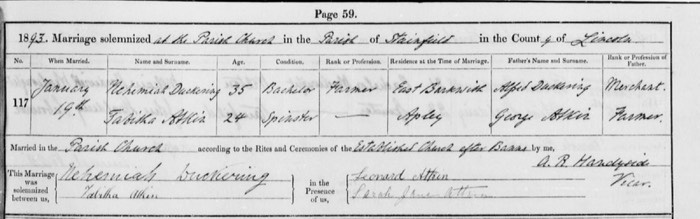 Page 59.
1893. Marriage solemnized at the Parish Church in the Parish of Stainfield in the County of Lincoln
No. When Married. Name and Surname. Age. Condition. Rank or Profession. Residence at the Time of Marriage. Father's Name and Surname. Rank or Profession of Father.
117 January 19th Nehemiah Duckering 35 Bachelor Farmer East Barkwith Alfred Duckering Merchant.
Tabitha Atkin 24 Spinster — Apley George Atkin Farmer.
Married in the Parish Church according to the Rites and Ceremonies of the Established Church after Banns by me,
A. R. Vicar.
This Marriage was solemnized between us, Nehemiah Duckering in the Presence of us, Leonard Atkin
Tabitha Atkin Sarah Jane